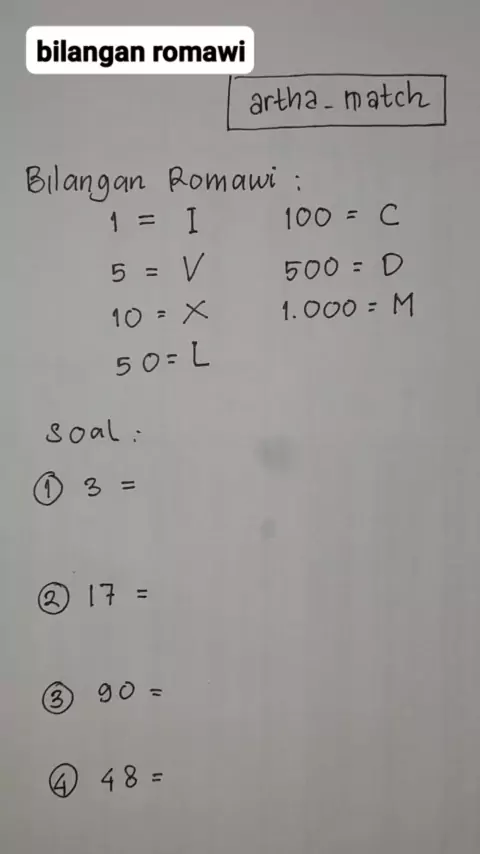 bilangan romawi
artha_match
Bilangan Romawi :
1 = I
100 = C
5 = V
500 = D
10 = X
1.000 = M
50 = L
soal :
① 3 =
② 17 =
③ 90 =
④ 48 =